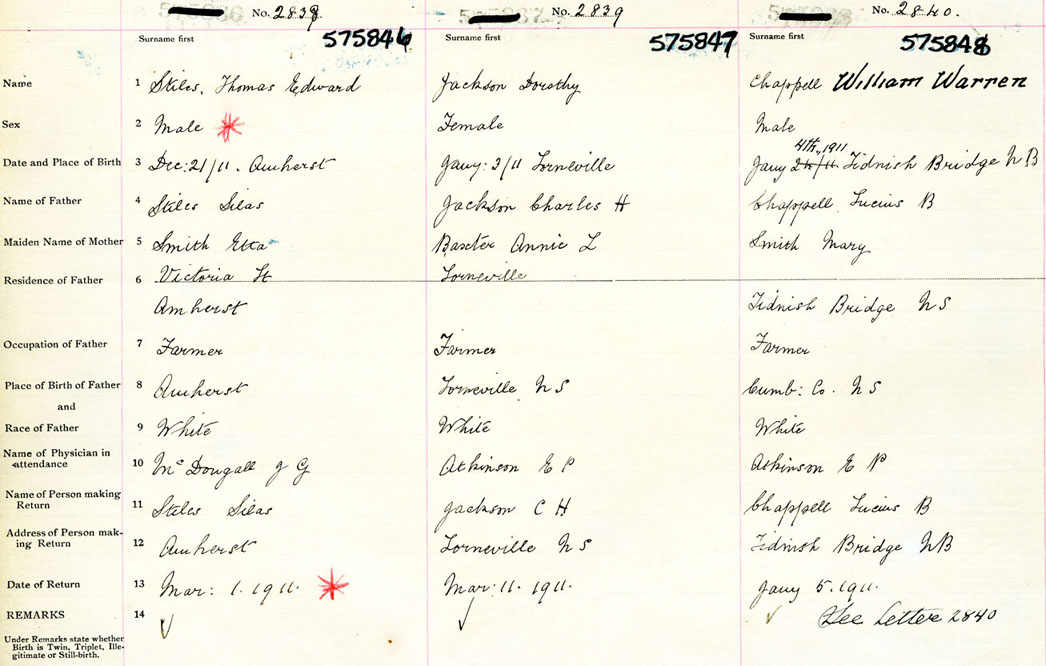 No. 2838 No. 2839 No. 2840.
Surname first 575846 Surname first 575847 Surname first 575848
Name 1 Stiles, Thomas Edward Jackson Dorothy Chappell William Warren
Sex 2 Male Female Male
4th, 1911
Date and Place of Birth 3 Dec: 21/11. Amherst Jany: 2/11 Lorneville Jany Tidnish Bridge N B
Name of Father 4 Stiles Silas Jackson Charles H Chappell Lucius B
Maiden Name of Mother 5 Smith Etta Baxter Annie L Smith Mary
Residence of Father 6 Victoria St Lorneville
Amherst Tidnish Bridge N S
Occupation of Father 7 Farmer Farmer Farmer
Place of Birth of Father 8 Amherst Lorneville N S Cumb: Co. N S
and
Race of Father 9 White White White
Name of Physician in
attendance 10 McDougall J G Atkinson E P Atkinson E P
Name of Person making
Return 11 Stiles Silas Jackson C H Chappell Lucius B
Address of Person mak-
ing Return 12 Amherst Lorneville N S Tidnish Bridge NB
Date of Return 13 Mar: 1. 1911. Mar: 11. 1911. Jany 5. 1911.
REMARKS 14 See Letter 2840
Under Remarks state whether
Birth is Twin, Triplet, Ille-
gitimate or Still-birth.